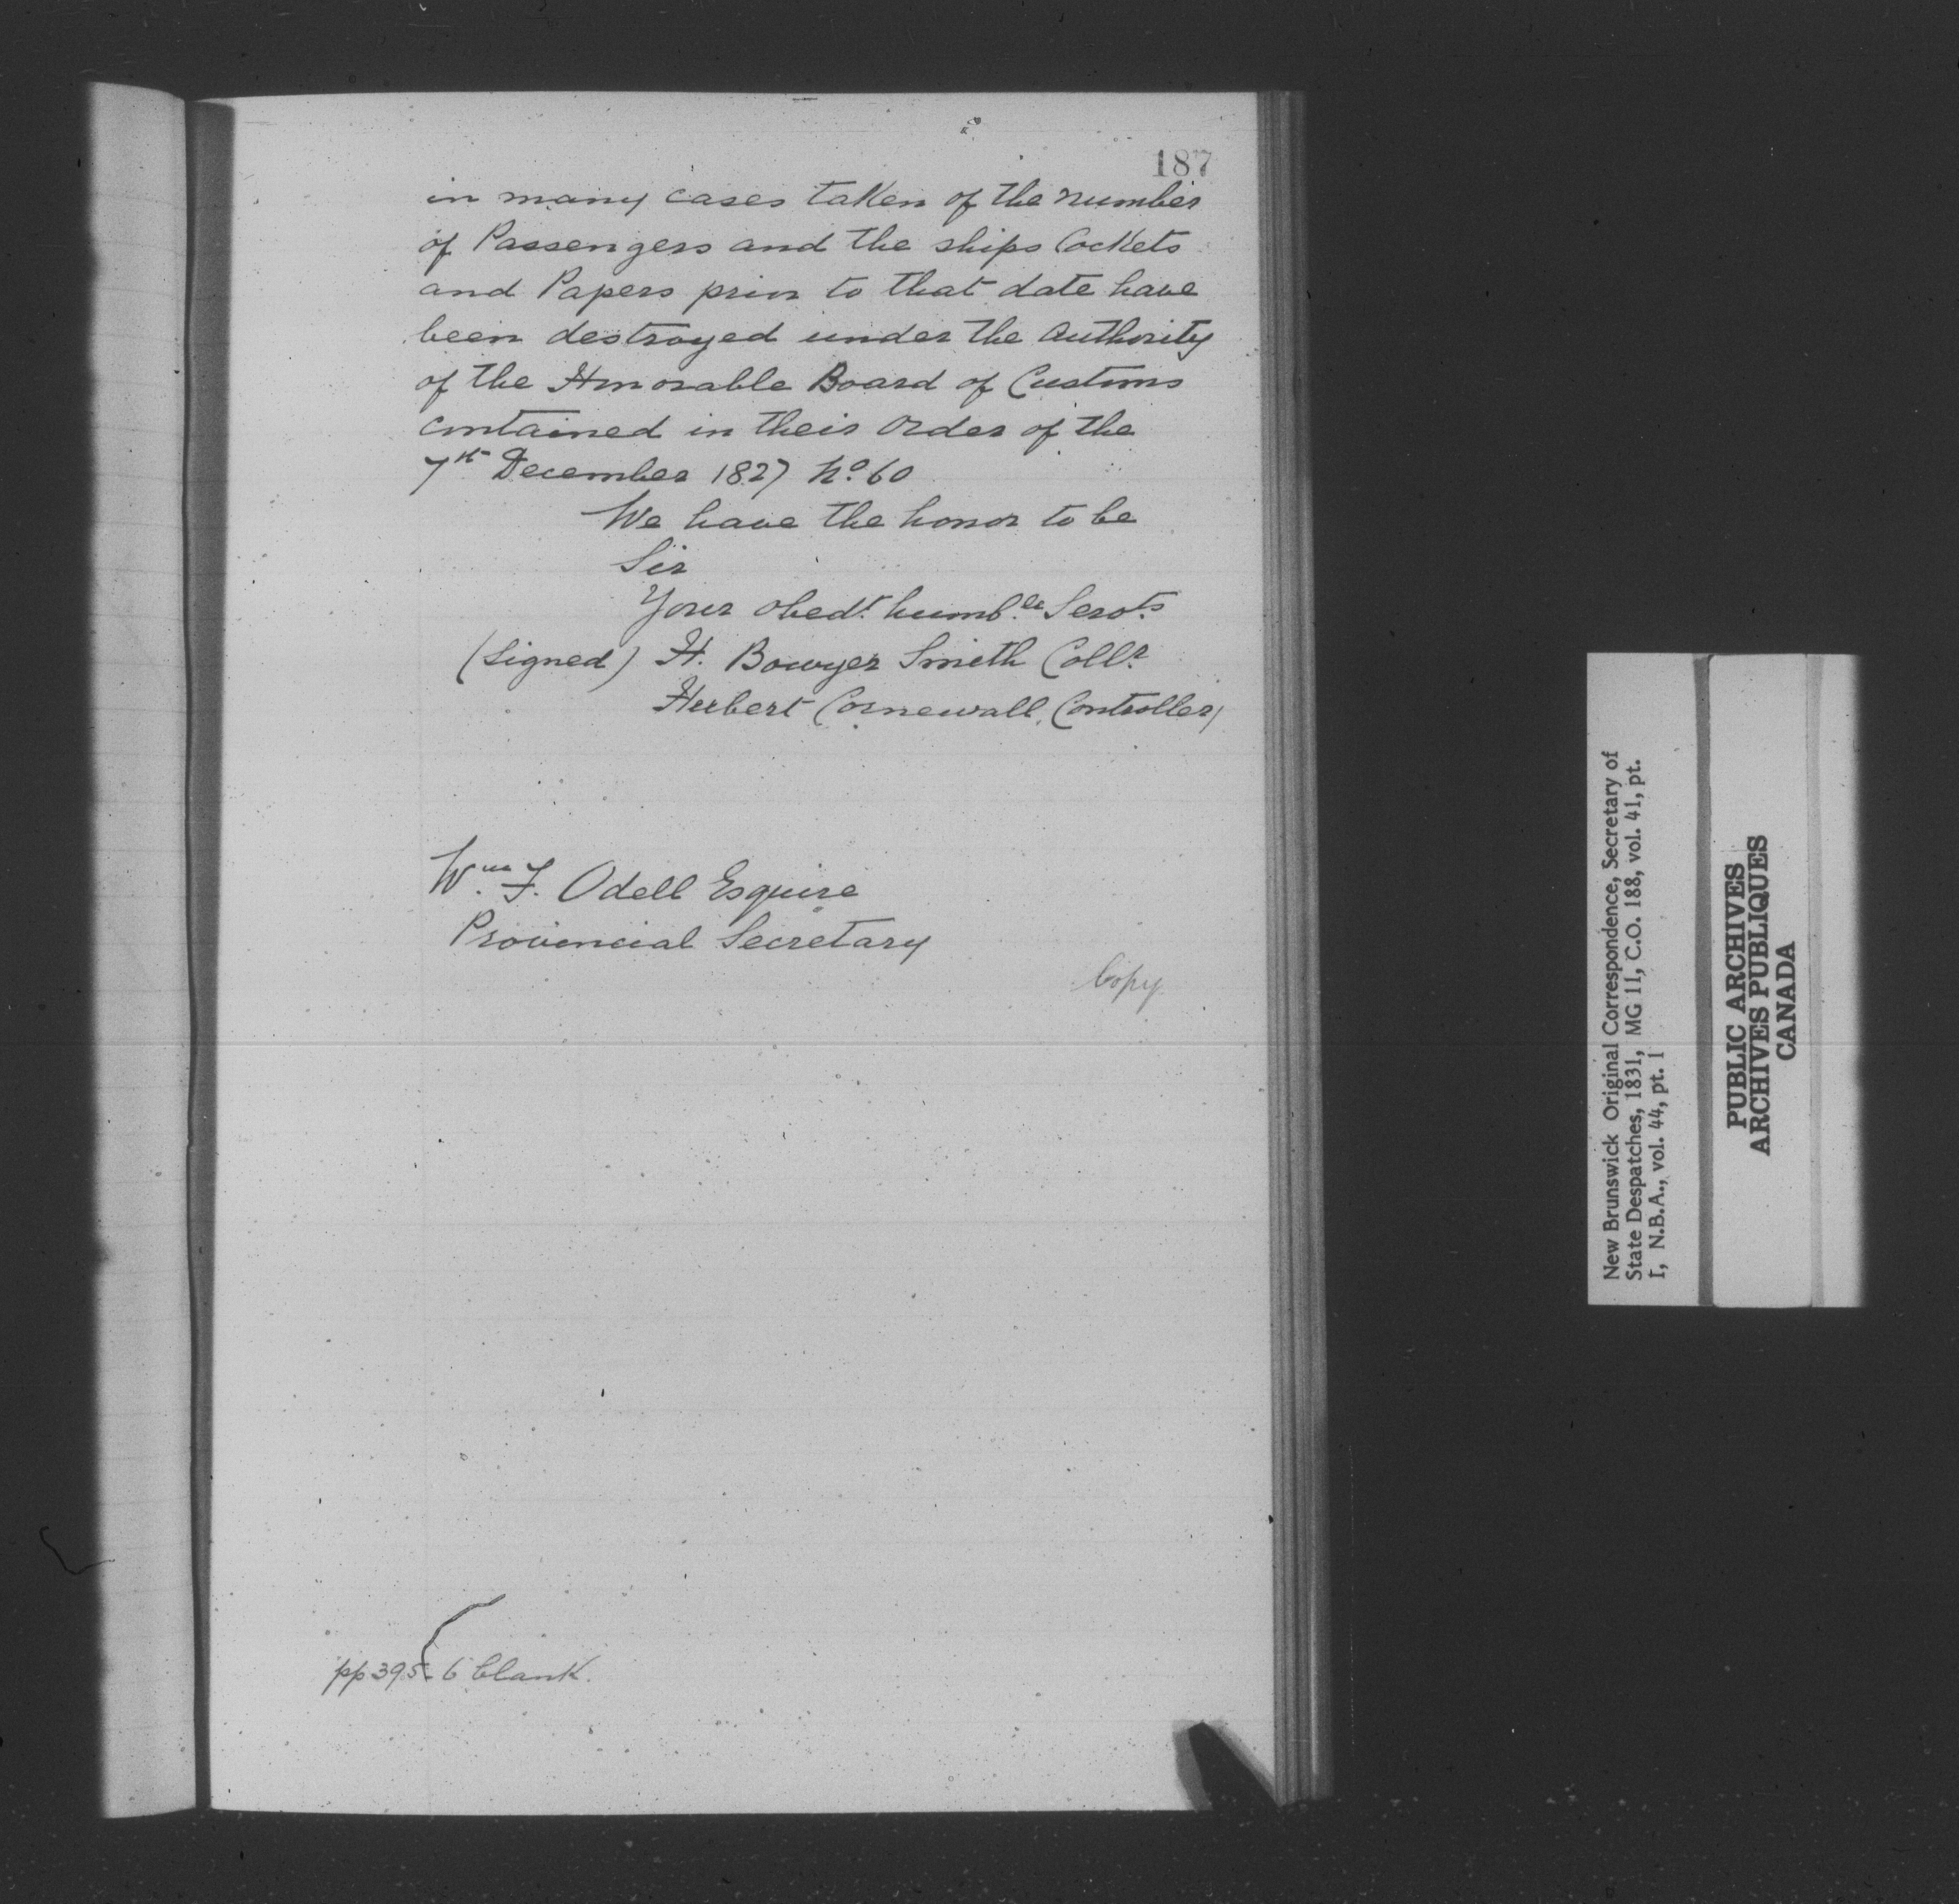 187
in many cases taken of the number
of Passengers and the ships Cockets
and Papers prior to that date have
been destroyed under the authority
of the Honorable Board of Customs
contained in their Order of the
7th December 1827 No. 60
We have the honor to be
Sir
Your obedt. humble. Servts.
(Signed) H. Bowyer Smith Collr.
Herbert Cornewall, Controller
Wm. F. Odell Esquire
Provincial Secretary
Copy
pp 395-6 blank.
New Brunswick Original Correspondence, Secretary of
State Despatches, 1831, MG 11, C.O. 188, vol. 41, pt.
I, N.B.A., vol. 44, pt. 1
PUBLIC ARCHIVES
ARCHIVES PUBLIQUES
CANADA